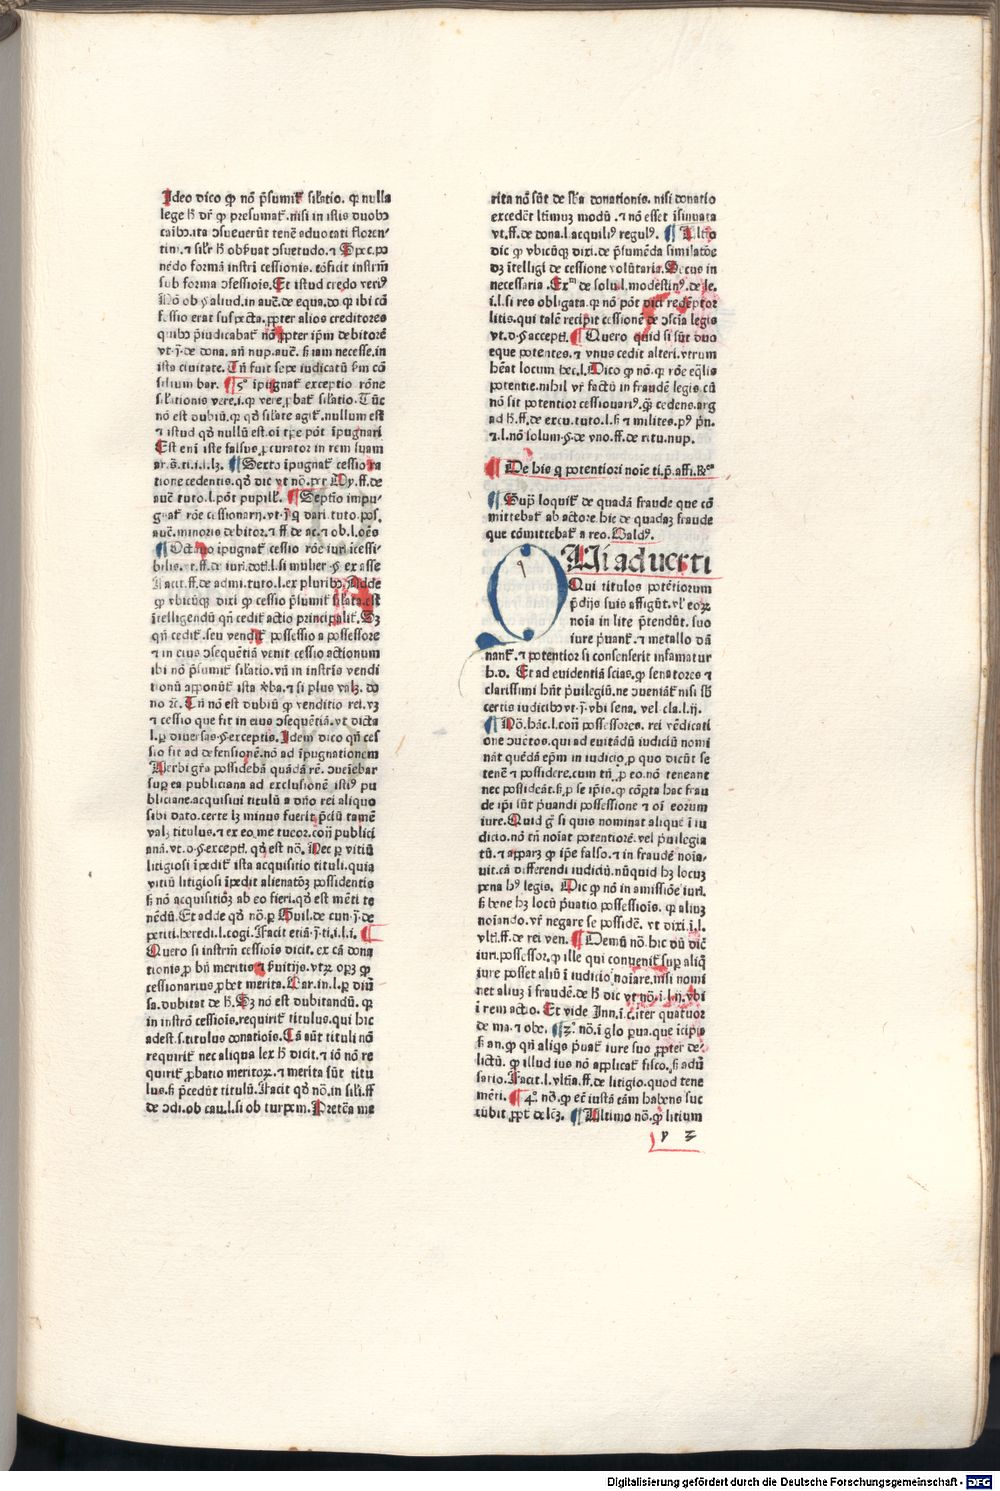 Ideo dico ꝙ nō p̄sumit᷑ sil̓atio. qꝛ nulla
lege h̓ dr̄ ꝙ presumat᷑. nisi in istis duobꝰ
caibꝰ. ita ɔsueuerūt tenē aduocati floren-
tini. ⁊ sil̓r h̓ obẜuat ɔsuetudo. ⁊ Spec. po
nēdo formā instr̄i cessionis. cōficit instrm̄
sub forma ɔfessiōis. Et istud credo verū
Nō ob. s. aliud. in aue. de equa. do. qꝛ ibi cō
fessio erat suspecta. ꝓpter alios creditores
quibꝰ p̄iudicabat᷑ nō ꝓpter ip̄m debitorē
ista ciuitate. Tn̄ fuit sepe iudicatū ẜm cō
silium bar. ¶ 5º īpugnat᷑ exceptio rōne
sil̓ationis vere. i. qꝛ vere ꝓbat᷑ sil̓atio. Tūc
nō est dubiū. qꝛ qd̓ sil̓ate agit᷑. nullum est
⁊ istud qd̓ nullū est. oī tp̄e pōt īpugnari
Est enī iste falsus ꝓcurator in rem suam
ar. ¶ Sexto īpugnat᷑ cessio ra
tione cedentis. qd̓ dic vt nō.
auē tuto. l. pōt pupill᷑. ¶ Septīo impu-
gnat᷑ rōe cessionarij. vt. dari. tuto. pos.
auē. minoris debitor. ⁊ ff de ac. ⁊ ob. l. oēs
¶ Octauo īpugnat᷑ cessio rōe iuri īcessi-
bilis. vt. ff. de iuri. dot. l. si mulier. § ex asse
Facit. ff. de admi. tuto. l. ex pluribꝰ. Adde
ꝙ vbicūqꝫ dixi ꝙ cessio p̄sumit᷑ sil̓ata. est
ītelligendū qn̄ cedit᷑ actio principalit᷑. Sꝫ
qn̄ cedit᷑. seu vendit᷑ possessio a possessore
⁊ in eius ɔsequētiā venit cessio actionum
ibi nō p̄sumit᷑ sil̓atio. vn̄ in instr̄is vendi
tionū apponūt᷑ ista v̓ba. ⁊ si plus valꝫ. do
no ⁊c. Tn̄ nō est dubiū ꝙ venditio rei. vꝫ
⁊ cessio que fit in eius ɔsequētiā. vt dicta
l. ꝑ diuersas. § exceptis. Idem dico qn̄ ces
sio fit ad defensionē. nō ad īpugnationem
Verbi grā possidebā quādā rē. ɔueīebar
suꝑ ea publiciana ad exclusionē istiꝰ pu
bliciane. acquisiui titulū a dn̄o rei aliquo
sibi dato. certe lꝫ minus fuerit p̄ciū tamē
valꝫ titulus. ⁊ ex eo me tueor. con̄ publici
anā. vt. d. § excepti. qd̓ est nō. Nec ꝑ vitiū
litigiosi īpedit᷑ ista acquisitio tituli. quia
vitiū litigiosi īpedit alienatōꝫ possidentis
ẜ nō acquisitiōꝫ ab eo fieri. qd̓ est mēti te
nēdū. Et adde qd̓ nō. ꝑ Guil. de cun.
petiti. heredi. l. cogi. Facit etiā.
Quero si instrm̄ cessiōis dicit. ex cā dona
tionis ꝓ bn̄ meritis ⁊ ẜuitijs. vtrꝫ opꝫ ꝙ
cessionarius ꝓbet merita. Bar. in. l. ꝑ diū
sa. dubitat de h̓. Sꝫ nō est dubitandū. qꝛ
in instrō cessiōis. requirit᷑ titulus. qui hic
adest. s. titulus donatiōis. Cā aūt tituli nō
requirit᷑ nec aliqua lex h̓ dicit. ⁊ iō nō re
quirit᷑ ꝓbatio meritoꝝ. ⁊ merita sūt titu
lus. ẜ p̄cedūt titulū. Facit qd̓ nō. in sil̓i. ff
de ɔdi. ob cau. l. si ob turpem. Preteā me
rita nō sūt de sb̓a donationis. nisi donatio
excedēt l̓timuꝫ modū. ⁊ nō esset īsinuata
vt. ff. de dona. l. acquiliꝰ regulꝰ. ¶ Vltīo
dic ꝙ vbicūqꝫ dixi. de p̄sumēda similatōe
dꝫ ītelligi de cessione volūtaria. Secus in
necessaria. Exᵐ de solu. l. modestinꝰ. de le.
i. l. si reo obligata. qꝛ nō pōt dici redēptor
litis. qui talē recipit cessionē de ɔscīa legis
vt. d. § accepti. ¶ Quero quid si sūt duo
eque potentes. ⁊ vnus cedit alteri. vtrum
hēat locum hec. l. Dico ꝙ nō. qꝛ rōe eq̄lis
potentie. nihil vr̄ factū in fraudē legis cū
nō sit potentior cessionariꝰ. qꝫ cedens. arg
ad h̓. ff. de excu. tuto. l. ẜ ⁊ milites. pꝰ pn̄.
⁊. l. nō solum. §. de vno. ff. de ritu. nup.
¶ De his q̄ potentiori noīe ti. p̄. affi. Rᵉᵃ
¶ Sup̄ loquit᷑ de quadā fraude que cō
mittebat᷑ ab actore. hic de quadaꝫ fraude
que cōmittebat᷑ a reo. Baldꝰ.
QUi aduerti
Qui titulos potētiorum
p̄dijs suis affigūt. vl̓ eoꝝ
noīa in lite p̄tendūt. suo
iure p̄uant᷑. ⁊ metallo dā
nant᷑. ⁊ potentior si consenserit infamatur
h. d. Et ad euidentiā scias. ꝙ senatores ⁊
clarissimi hn̄t p̄uilegiū. ne ɔueniāt᷑ nisi sb̓
certis iudicibꝰ vt. vbi sena. vel cla. l. ij.
¶ Nō. hāc. l. con̄ possessores. rei vēdicati
one ɔuētos. qui ad euitādū iudiciū nomi
nāt quēdā ep̄m in iudicio. ꝓ quo dicūt se
tenē ⁊ possidere. cum tn̄. ꝓ eo nō teneant
nec possideāt. ẜ ꝓ se ip̄is. ꝙ cōꝑta hac frau
de ip̄i sūt p̄uandi possessione ⁊ oī eorum
iure. Quid g̓ si quis nominat aliquē ī iu
dicio. nō tn̄ noīat potentiorē. vel p̄uilegia
tū. ⁊ apparꝫ ꝙ ip̄e falso. ⁊ in fraudē noīa-
uit. cā differendi iudiciū. nūquid hꝫ locuꝫ
pena hꝰ legis. Dic ꝙ nō in amissiōe iuri.
ẜ bene hꝫ locū p̄uatio possessiois. qꝛ aliuꝫ
noīando. vr̄ negare se possidē. vt dixi. i. l.
vlti. ff. de rei ven. ¶ Demū nō. hic
iuri. possessor. ꝙ ille qui conuenit᷑ suꝑ aliq̄
iure posset aliū ī iudicio noīare. nisi nomi
net aliuꝫ ī fraudē. de h̓ dic vt nō. i. l. ij. vbi
ī rem actio. Et vide Inn. ī. c. iter quatuor
de ma. ⁊ obe. ¶ 3º nō. ī glo
ẜ an. ꝙ qn̄ aliq̄s p̄uat᷑ iure suo ꝓpter de-
lictū. ꝙ illud ius nō applicat᷑ fisco. ẜ aduͦ
sario. Facit. l. vltīa. ff. de litigio. quod tene
mēti. ¶ 4º nō. ꝙ eē iustā cām habens suc
cūbit ¶ Ultimo nō. ꝙ litium
p 3
Digitalisierung gefördert durch die Deutsche Forschungsgemeinschaft - DFG